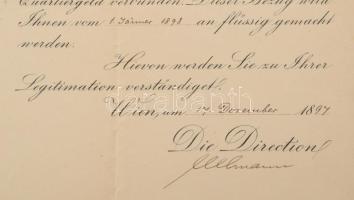 Quartiergeld verbunden. Dieser Bezug wird
Ihnen vom 1. Jänner 1898 an flüssig gemacht
werden.
Hievon werden Sie zu Ihrer
Legitimation verständiget.
Wien, am 17. Dezember 1897
Die Direction